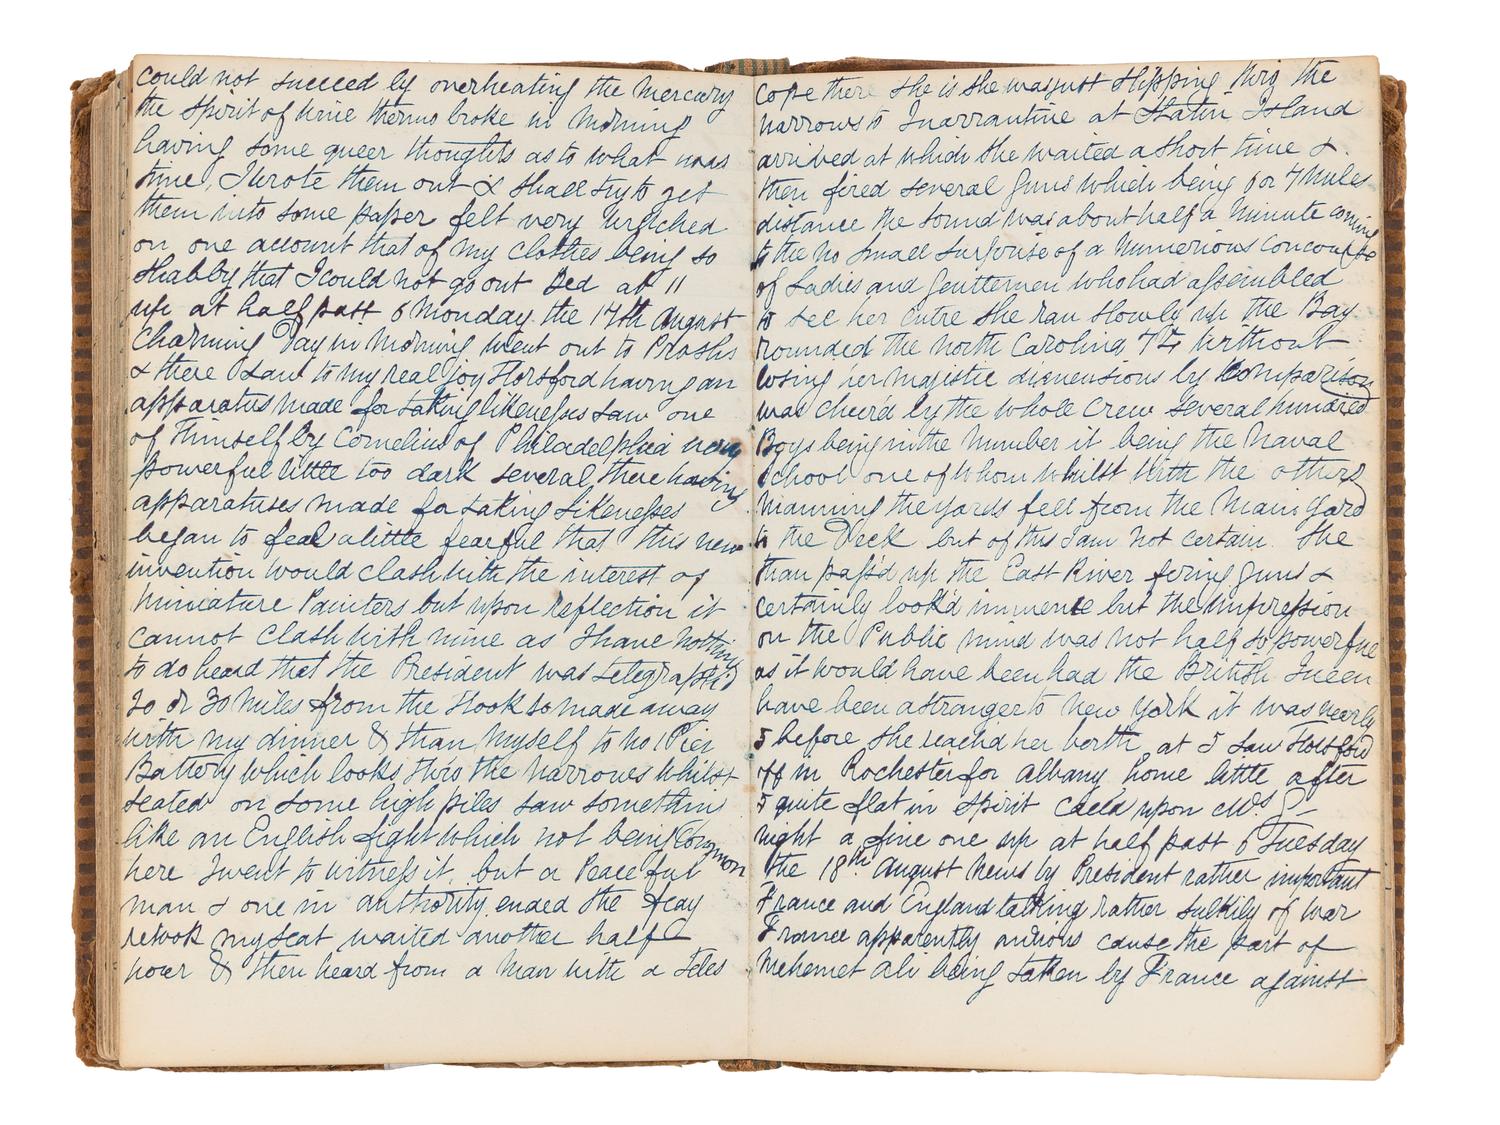 could not succeed by overheating the Mercury
the Spirit of Wine thermo broke in Morning
having some queer thoughts as to what was
time, I wrote them out & shall try to get
them into some paper felt very wretched
on one account that of my clothes being so
shabby that I could not go out Bed at 11
up at half past 6 Monday the 17th August
Charming Day in Morning went out to Proshs
& there I saw to my real joy Horsford having an
apparatus made for taking likenesses saw one
of Himself by Cornelius of Philadelphia very
powerful little too dark several there having
apparatuses made for taking Likenesses
began to feal a little fearful that this new
invention would clash with the interest of
Miniature Painters but upon reflection it
cannot Clash with mine as I have nothing
to do heard that the President was telegraph'd
20 or 30 Miles from the Hook so made away
with my dinner & than Myself to No 1 Pier
Battery which looks thro the Narrows whilst
seated on some high piles saw something
like an English fight which not being Common
here I went to witness it, but a Peaceful
man & one in authority ended the fray
retook my seat waited another half
hour & then heard from a Man with a teles
cope there she is she was just slipping thro the
narrows to Quarrantine at Staten Island
arrived at which she waited a short time &
then fired several Guns which being 6 or 7 Miles
distance the sound was about half a Minute coming
to the no small surprise of a Numerious Concourse
of Ladies and Gentlemen who had assembled
to see her entre she ran slowly up the Bay
rounded the North Carolina 74 without
losing her majestic dimensions by Comparison
was cheer'd by the whole Crew several hundred
Boys being in the Number it being the Naval
School one of whom whilst with the others
manning the yards fell from the Main Yard
to the Deck but of this I am not certain She
than pass'd up the East River firing Guns &
certainly look'd immence but the impression
on the Public mind was not half so powerful
as it would have been had the British Queen
have been a stranger to New York it was nearly
5 before she reach'd her berth at 5 saw Horsford
off in Rochester for Albany home little after
5 quite flat in spirit Call'd upon Mrs. G—
night a fine one up at half past 6 Tuesday
the 18th August News by President rather important
France and England talking rather sulkily of war
France apparently anxious cause the part of
Mehemet Ali being taken by France against